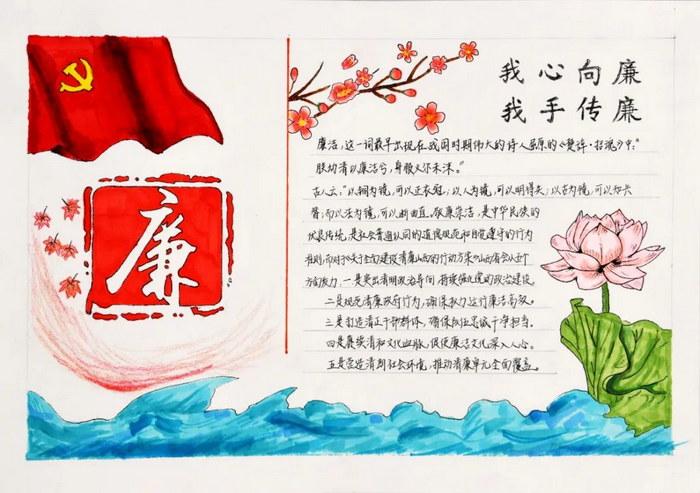 我心向廉
我手传廉
廉
廉洁，这一词最早出现在我国时期伟大的诗人屈原的《楚辞·招魂》中：
"朕幼清以廉洁兮，身服义尔未沫。"
古人云："以铜为镜，可以正衣冠，以人为镜，可以明得失，以古为镜，可以知兴
替，而以法为镜，可以断曲直。敬廉崇洁，是中华民族的
优良传统，是社会普遍认同的道德规范和自觉遵守的行为
准则，
方面发力，一是突出清明政治导向，持续强化党的政治建设。
二是规范清廉政府行为，确保权力运行廉洁高效。
三是打造清正干部群体，确保忠诚干净担当。
四是赓续清和文化血脉，促使廉洁文化深入人心。
五是营造清朗社会环境，推动清廉单元全面覆盖。